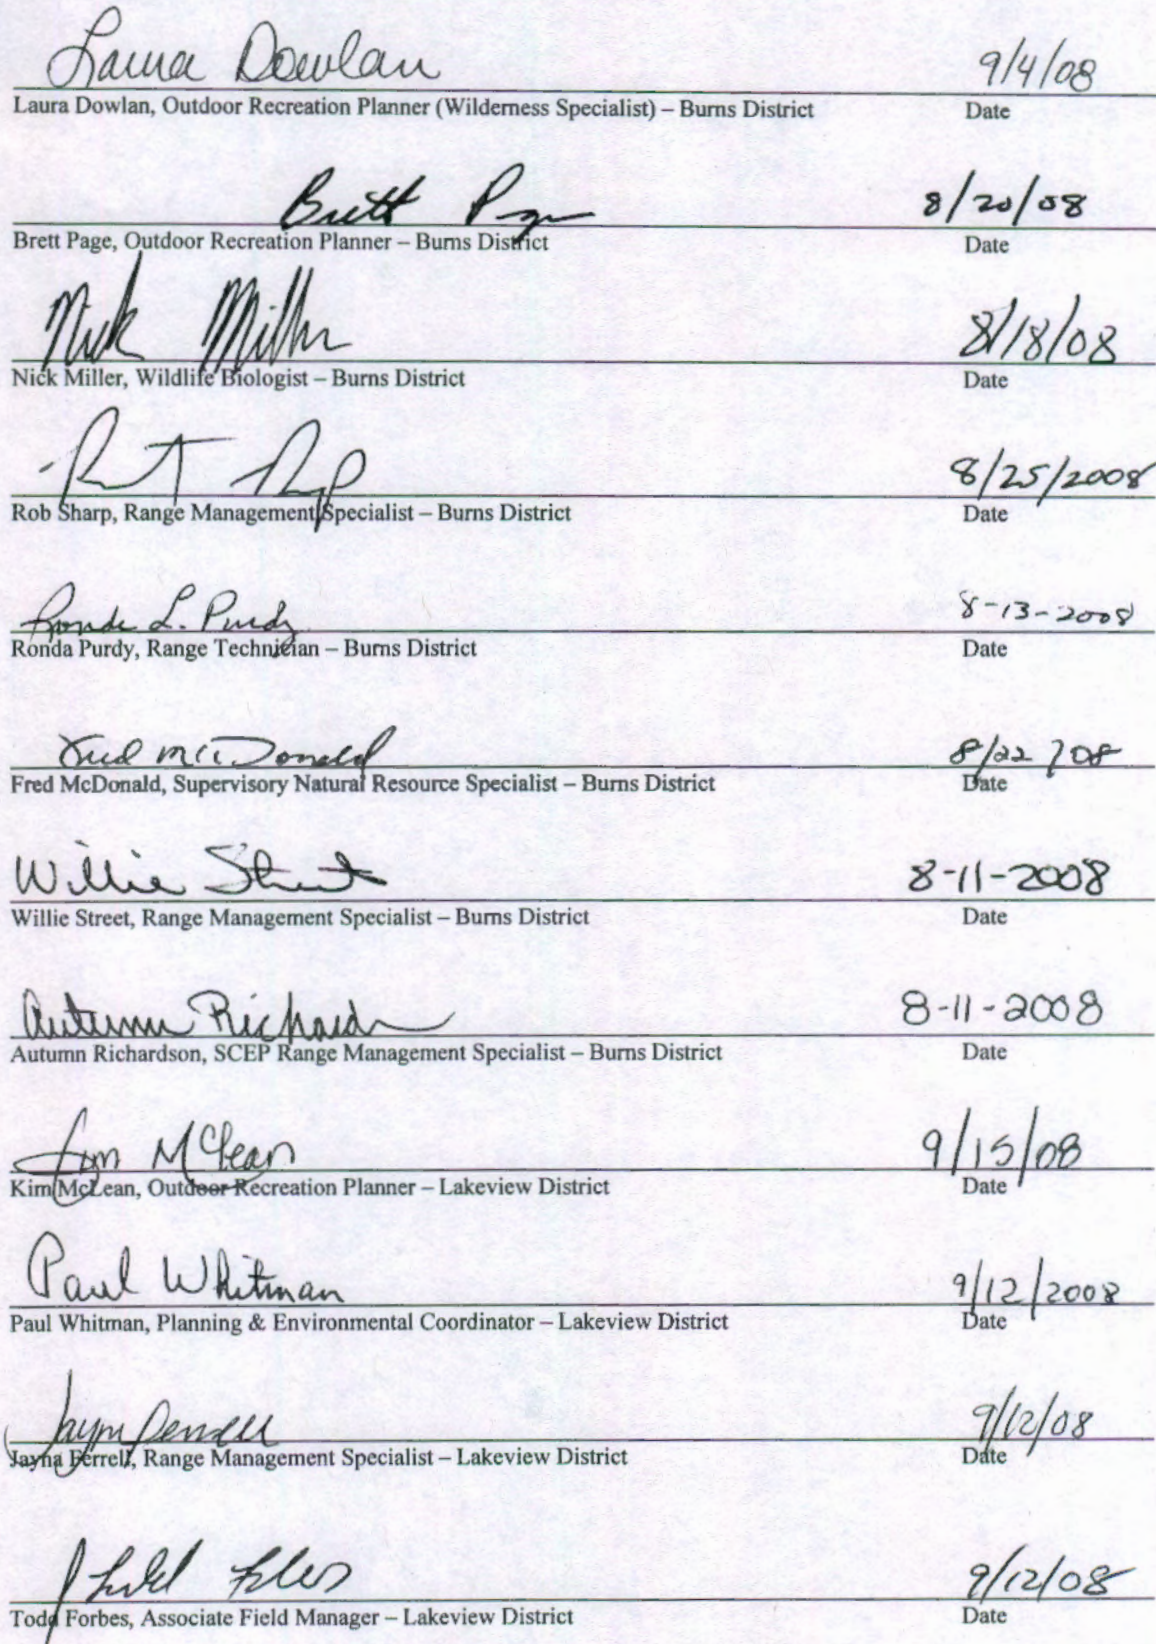 Laura Dowlan 9/4/08
Laura Dowlan, Outdoor Recreation Planner (Wilderness Specialist) – Burns District Date
Brett Page 8/20/08
Brett Page, Outdoor Recreation Planner – Burns District Date
Nick Miller 8/18/08
Nick Miller, Wildlife Biologist – Burns District Date
8/25/2008
Rob Sharp, Range Management Specialist – Burns District Date
Ronda L. Purdy 8-13-2008
Ronda Purdy, Range Technician – Burns District Date
Fred McDonald 8/22/08
Fred McDonald, Supervisory Natural Resource Specialist – Burns District Date
Willie Street 8-11-2008
Willie Street, Range Management Specialist – Burns District Date
Autumn Richardson 8-11-2008
Autumn Richardson, SCEP Range Management Specialist – Burns District Date
Kim McLean 9/15/08
Kim McLean, Outdoor Recreation Planner – Lakeview District Date
Paul Whitman 9/12/2008
Paul Whitman, Planning & Environmental Coordinator – Lakeview District Date
Jayna Ferrell 9/12/08
Jayna Ferrell, Range Management Specialist – Lakeview District Date
9/12/08
Todd Forbes, Associate Field Manager – Lakeview District Date